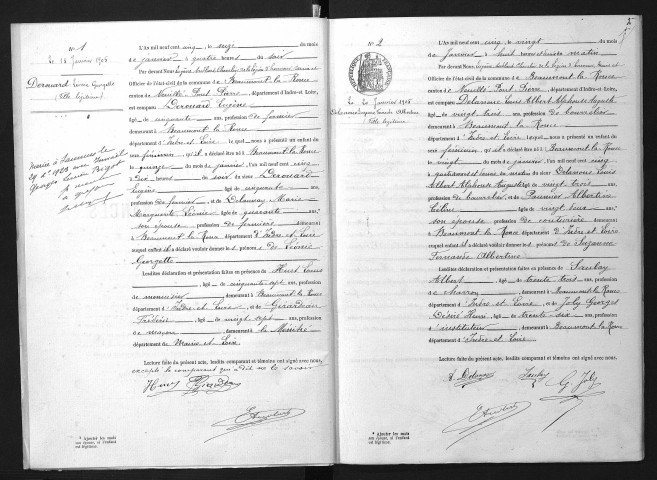 N° 1
Le 15 janvier 1905
Derouard Léonie Georgette
(fille légitime)
Mariée à Saumur le
Georges Lucien Bigot
L'An mil neuf cent cinq, le seize du mois
de janvier à quatre heures du soir
Par devant Nous,
Officier de l'état civil de la commune de Beaumont la Ronce
canton de Neuillé Pont Pierre, département d'Indre-et-Loire,
est comparu Derouard Eugène
âgé de cinquante ans, profession de fermier
demeurant à Beaumont la Ronce
département d'Indre et Loire, qui nous a présenté un enfant du
sexe féminin, qu'il a déclaré né à Beaumont la Ronce
le quinze du mois de janvier, l'an mil neuf cent cinq
à dix heures du soir de sieur Derouard
Eugène âgé de cinquante ans,
profession de fermier et de Delaunay Marie
Marguerite Léonie âgée de quarante ans,
son épouse profession de fermière demeurant
à Beaumont la Ronce département d'Indre et Loire
auquel enfant il a déclaré vouloir donner les prénoms de Léonie
Georgette
Lesdites déclaration et présentation faites en présence de Huet Louis
âgé de cinquante sept ans, profession
de menuisier demeurant à Beaumont la Ronce
département d'Indre et Loire, et de Girardeau
Frédéric âgé de vingt sept ans, profession
de maçon demeurant à la Ménitré
département de Maine et Loire
Lecture faite du présent acte, lesdits comparant et témoins ont signé avec nous,
excepté le comparant qui a dit ne le savoir
Huet Girardeau
* Ajouter les mots
son épouse, si l'enfant
est légitime.
N° 2
Le 20 janvier 1905
Delanoue Suzanne Fernande Albertine
fille légitime
L'An mil neuf cent cinq, le vingt du mois
de janvier à huit heures du matin
Par devant Nous,
Officier de l'état civil de la commune de Beaumont la Ronce
canton de Neuillé Pont Pierre, département d'Indre-et-Loire,
est comparu Delanoue Louis Albert Alphonse Auguste
âgé de vingt trois ans, profession de couvreur
demeurant à Beaumont la Ronce
département d'Indre et Loire, qui nous a présenté un enfant du
sexe féminin, qu'il a déclaré né à Beaumont la Ronce
le vingt du mois de janvier, l'an mil neuf cent cinq
à quatre heures du matin de sieur Delanoue Louis
Albert Alphonse Auguste âgé de vingt trois ans,
profession de couvreur et de Paumier Albertine
Céline âgée de vingt deux ans,
son épouse profession de couturière demeurant
à Beaumont la Ronce département d'Indre et Loire
auquel enfant il a déclaré vouloir donner les prénoms de Suzanne
Fernande Albertine
Lesdites déclaration et présentation faites en présence de Saulay
Albert âgé de trente trois ans, profession
de charron demeurant à Beaumont la Ronce
département d'Indre et Loire et de Joly Georges
Désiré Henri, âgé de trente six ans, profession
d'instituteur demeurant à Beaumont la Ronce
département d'Indre et Loire
Lecture faite du présent acte, lesdits comparant et témoins ont signé avec nous.
A. Delanoue Saulay G. Joly
* Ajouter les mots
son épouse, si l'enfant
est légitime.